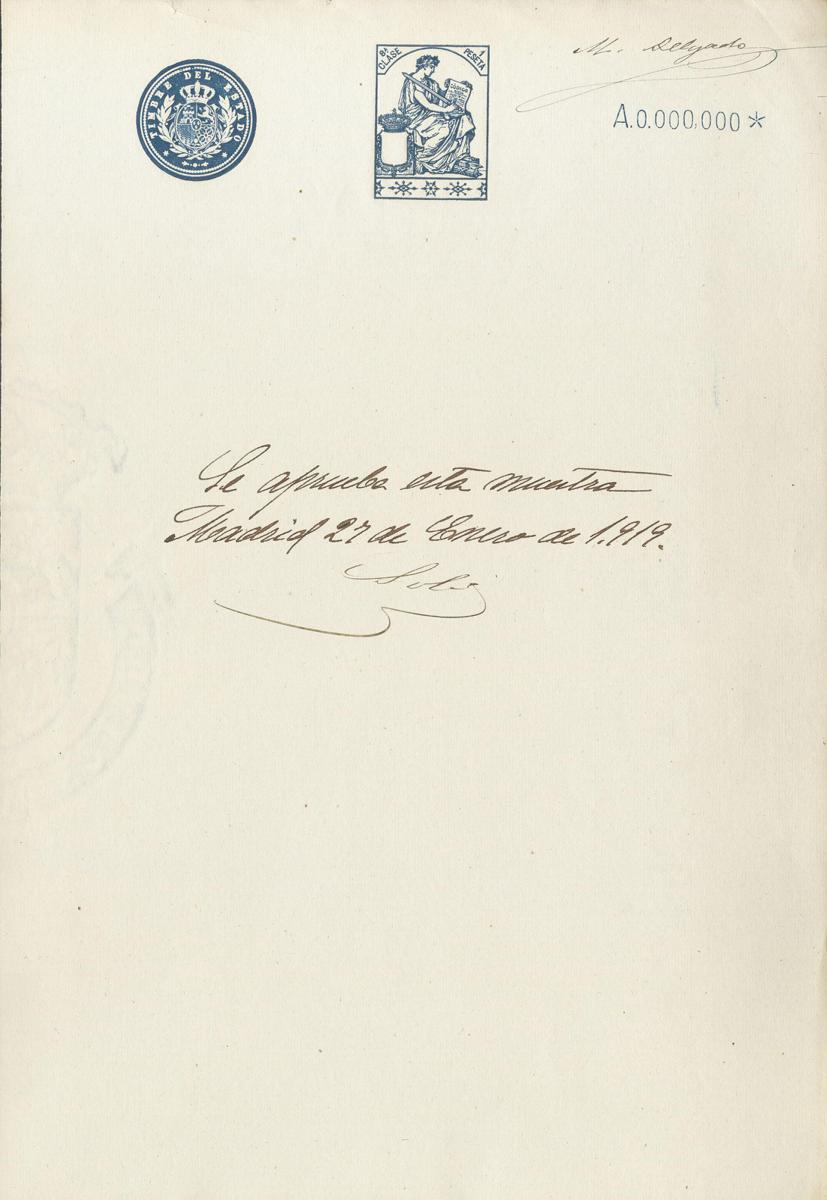 TIMBRE DEL ESTADO
8ª CLASE
1 PESETA
M. Delgado
A.0.000,000*
Se aprueba esta muestra
Madrid 27 de Enero de 1.919.